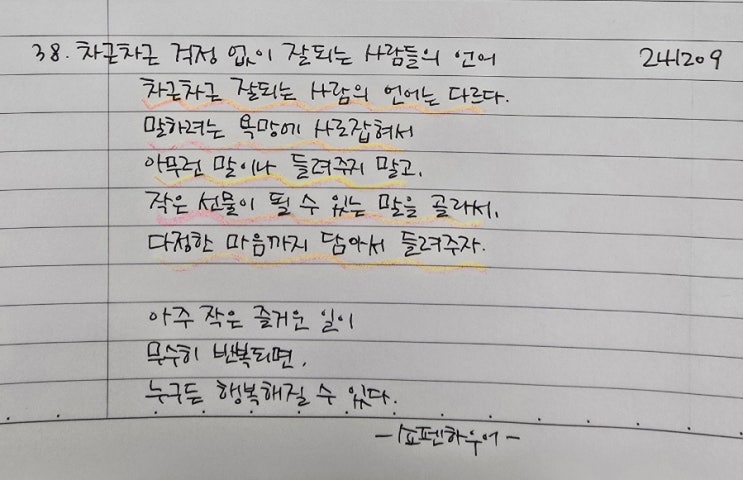 38. 차근차근 걱정 없이 잘되는 사람들의 언어 241209
차근차근 잘되는 사람의 언어는 다르다.
말하려는 욕망에 사로잡혀서
아무런 말이나 들려주지 말고,
작은 선물이 될 수 있는 말을 골라서,
다정한 마음까지 담아서 들려주자.
아주 작은 즐거운 일이
무수히 반복되면,
누구든 행복해질 수 있다.
-쇼펜하우어-